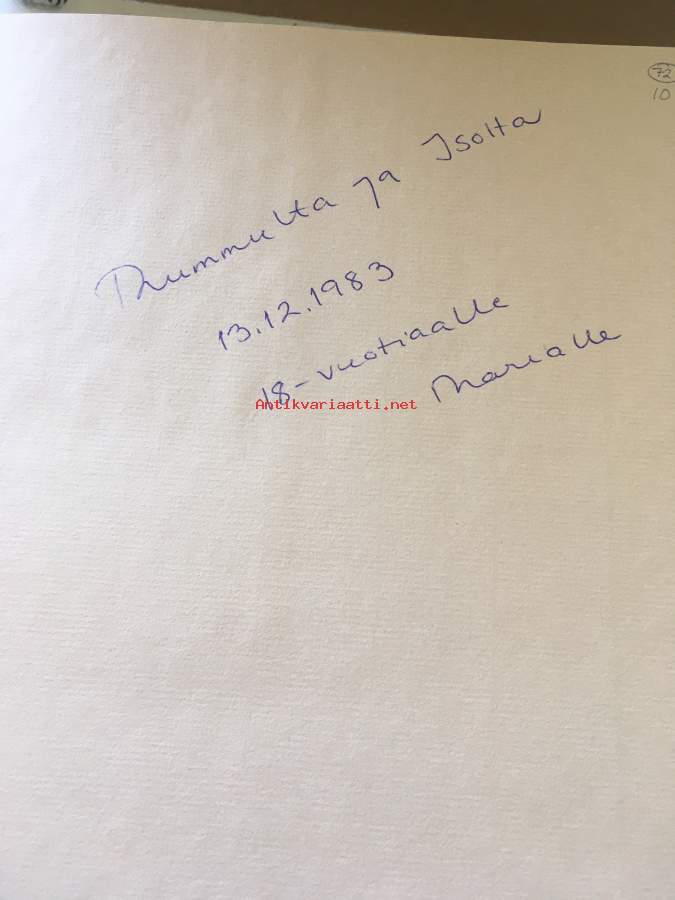 72
10
Mummulta ja Isolta
13.12.1983
18-vuotiaalle
Marialle
Antikvariaatti.net